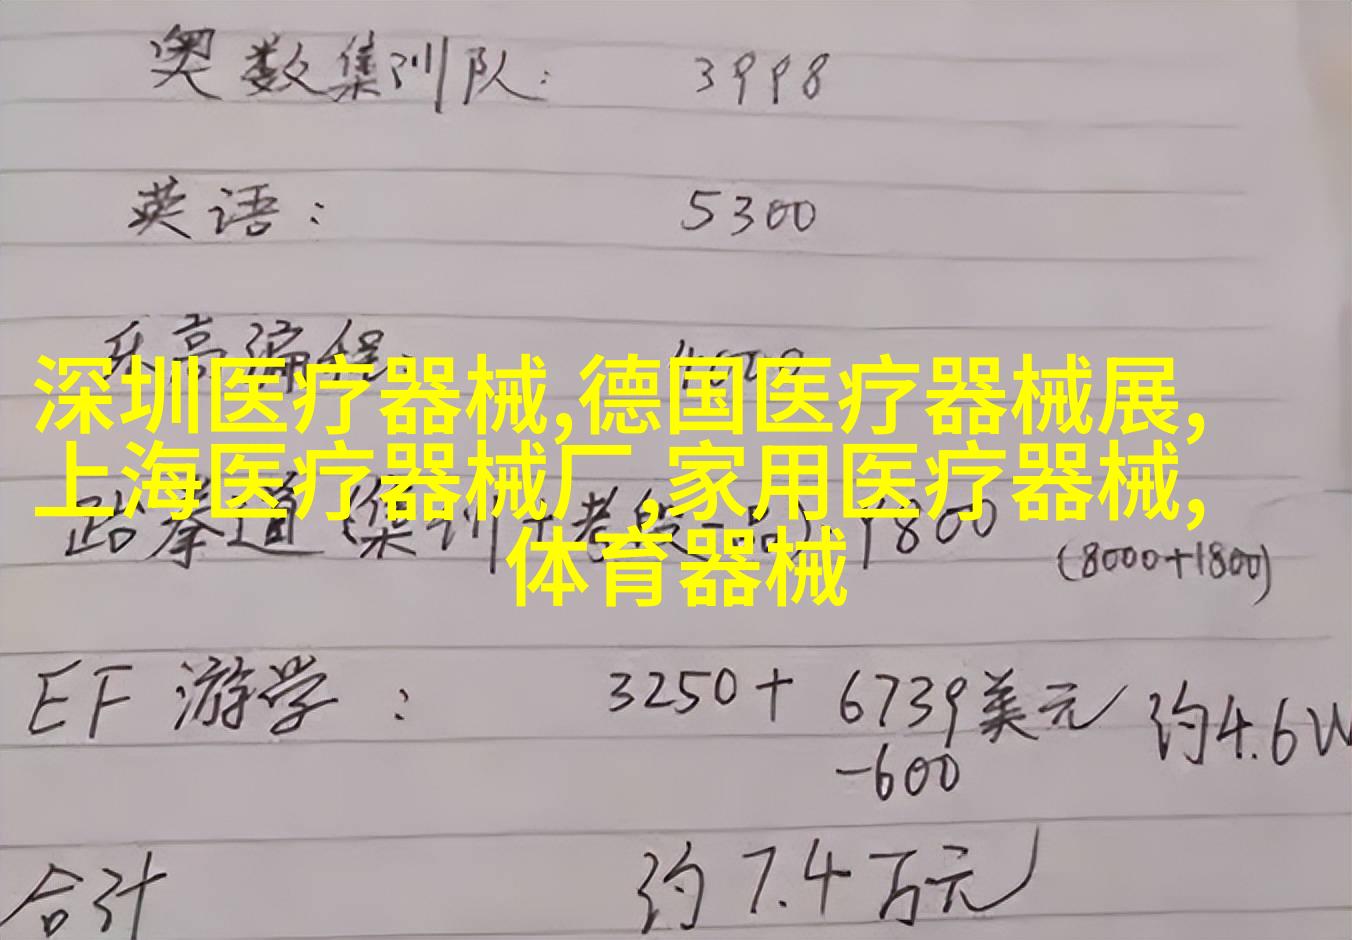 奥数集训队: 3998
英语: 5300
乐高编程: 4000
深圳医疗器械,德国医疗器械展,
上海医疗器械厂,家用医疗器械,
跆拳道(集训+考段一品): 9800 (8000+1800)
体育器械
EF 游学: 3250+ 6739美元 约4.6W
-600
合计 约7.4万元